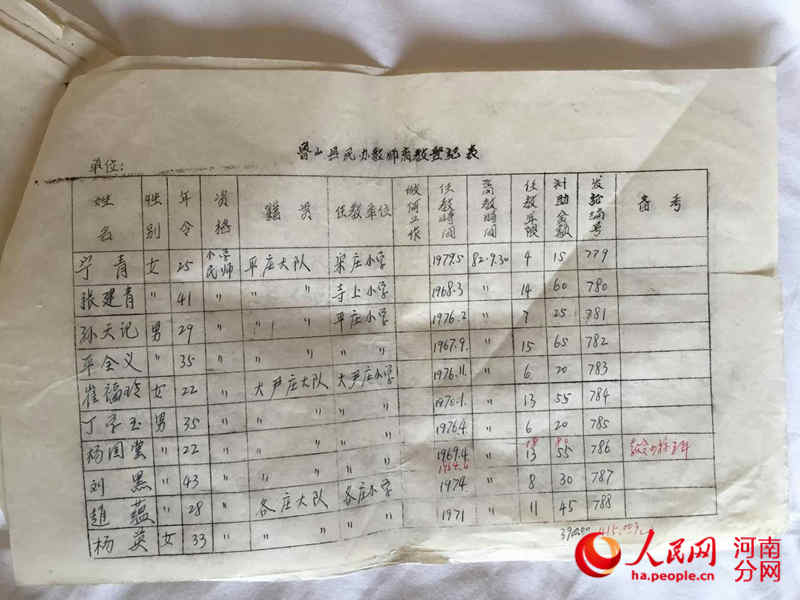 鲁山县民办教师离教登记表
单位:
姓名 性别 年令 资格 籍贯 任教单位 做何工作 任教时间 离教时间 任教年限 补助金额 发给编号 备考
宁青 女 25 小学民师 平庄大队 梁庄小学 1979.5 82.9.30 4 15 779
张建青 〃 41 〃 〃 〃 寺上小学 1968.3 〃 14 60 780
孙天记 男 29 〃 〃 〃 平庄小学 1976.2 〃 7 25 781
平全义 〃 35 〃 〃 〃 〃 〃 1967.9. 〃 15 65 782
崔福玲 女 22 〃 大尹庄大队 大尹庄小学 1976.11. 〃 6 20 783
丁 玉 男 35 〃 〃 〃 〃 〃 1970.1. 〃 13 55 784
杨国 〃 22 〃 〃 〃 〃 1976.4. 〃 6 20 785
刘黑 〃 43 〃 〃 〃 〃 1969.4 〃 13 55 786
赵蕴 〃 28 〃 各庄大队 各庄小学 1974. 〃 8 30 787
杨英 女 33 〃 〃 〃 〃 1971 〃 11 45 788
390.00 415.00
人民网 河南分网
ha.people.cn